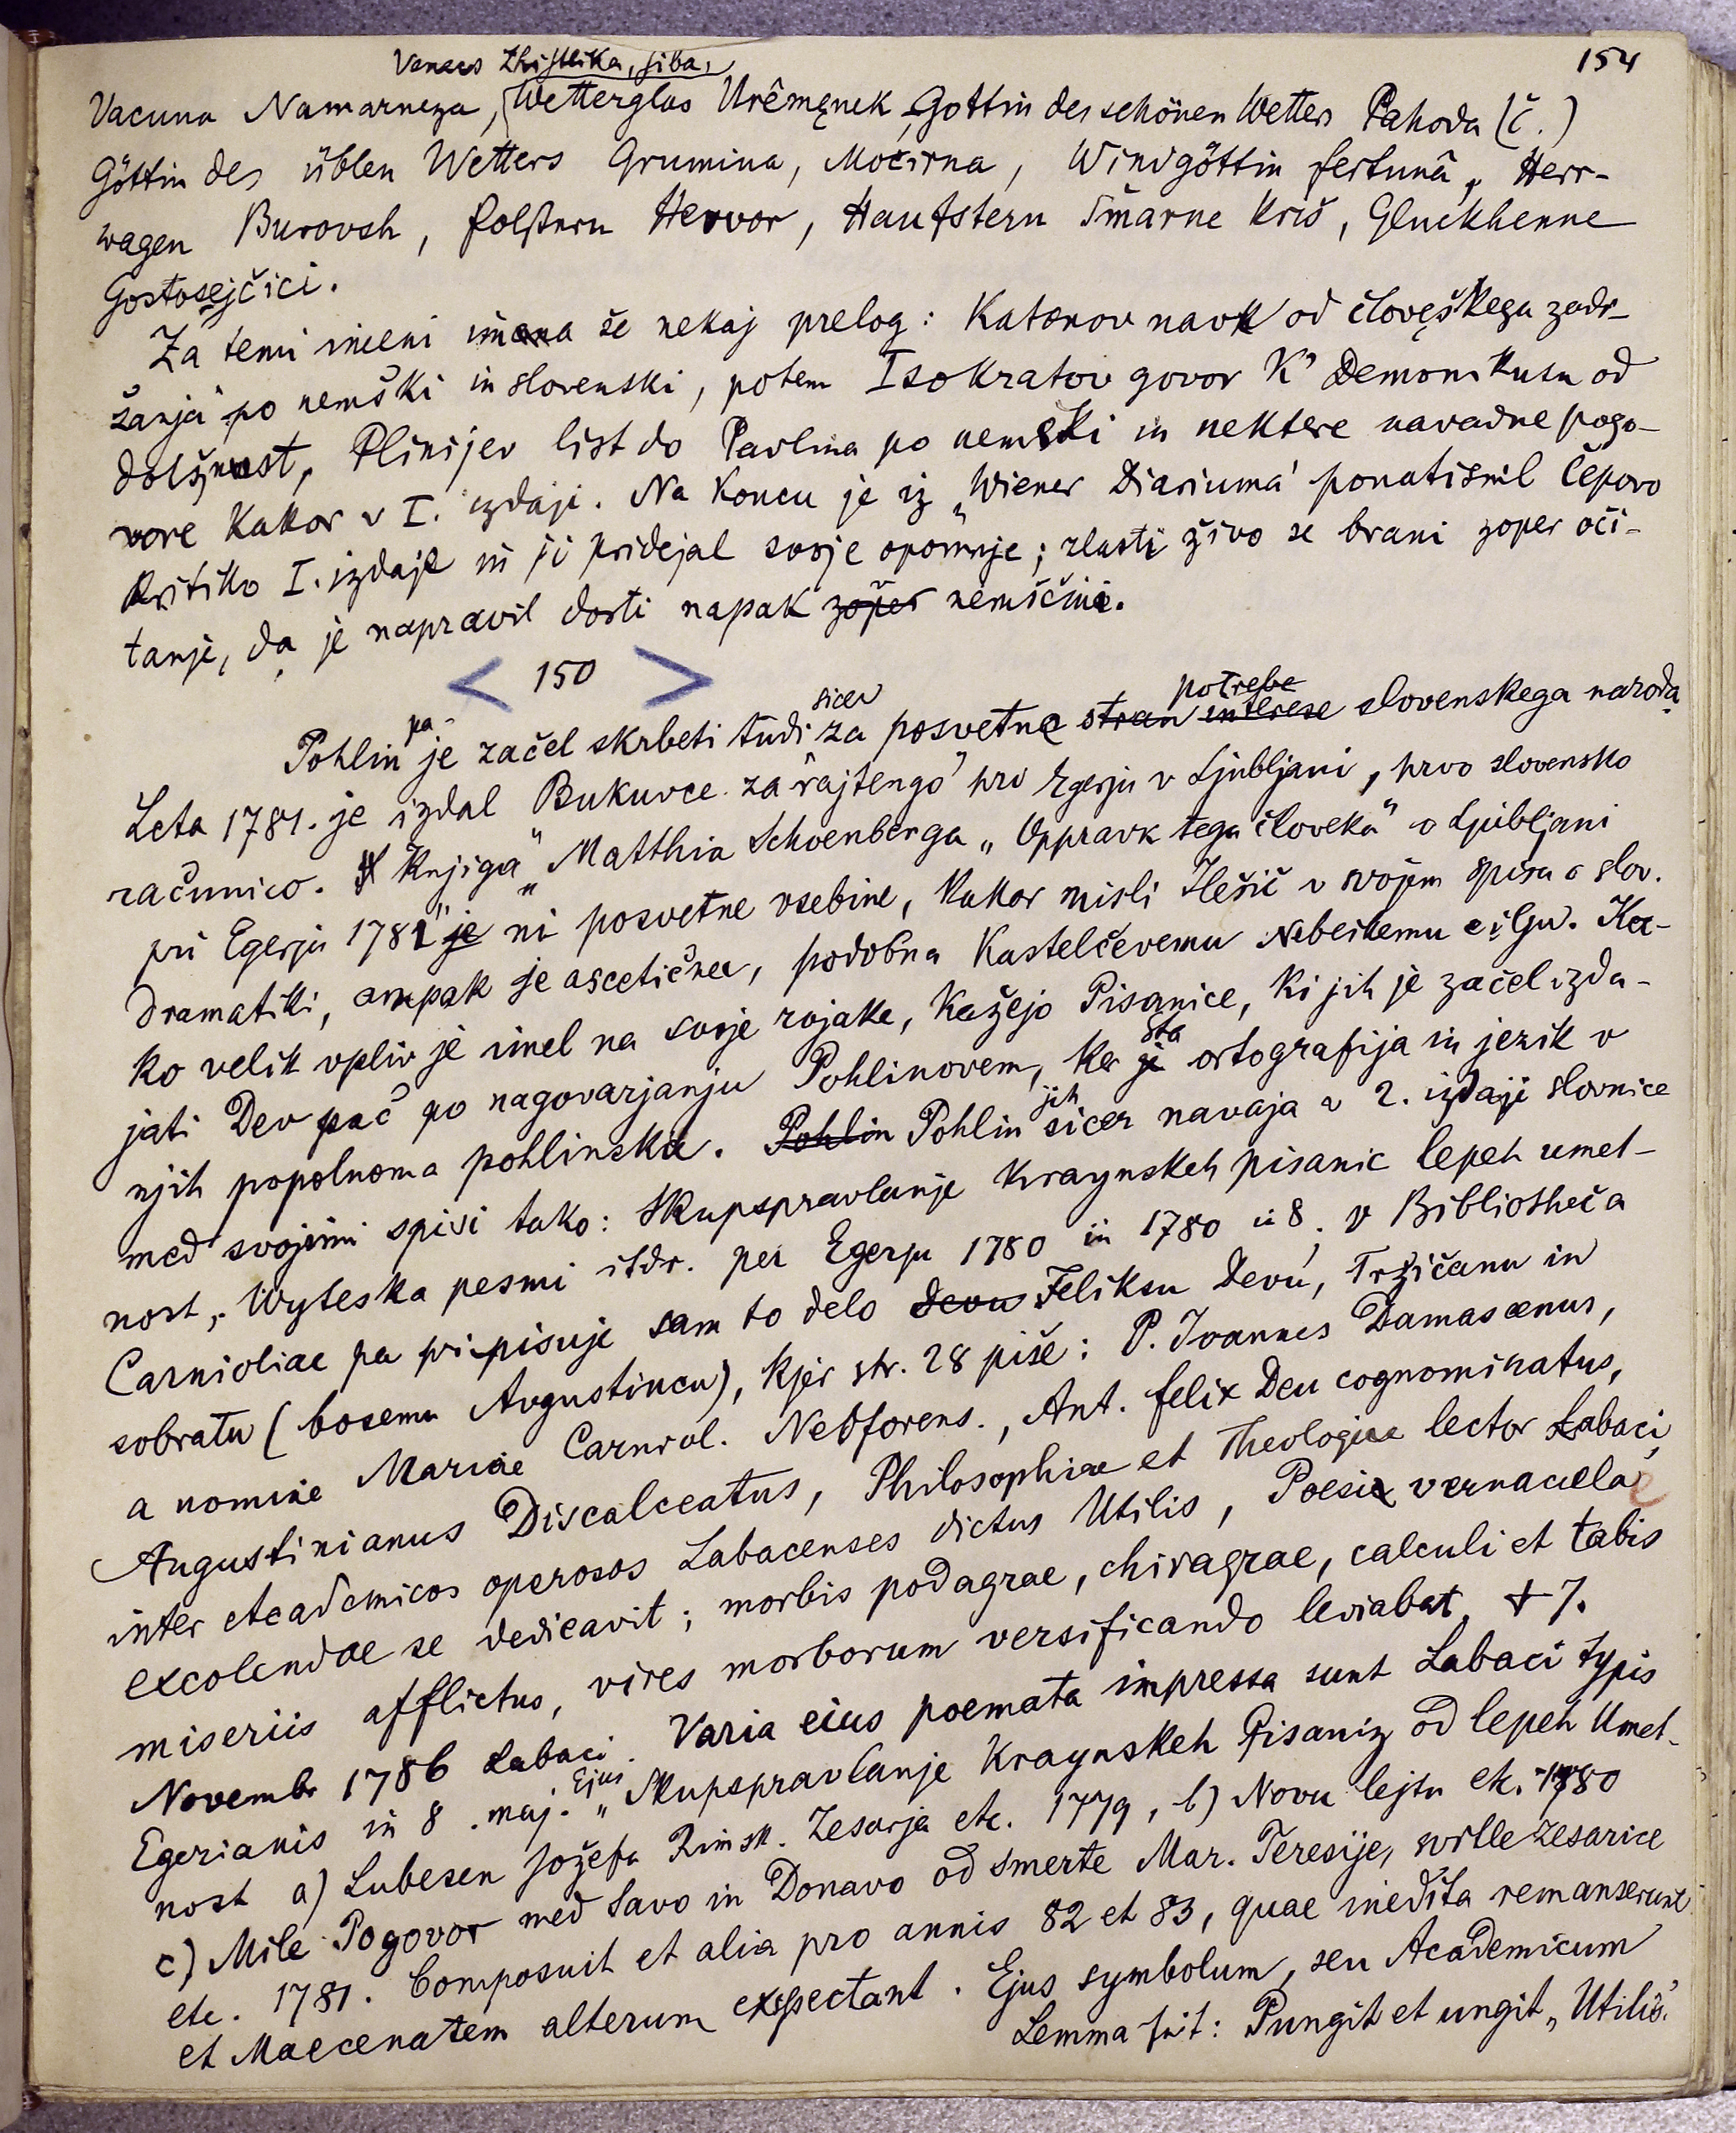 154
Venus Zhistlika, siba,
Vacuna Namarneza, Wetterglas Urêmęnek, Gottin des schönen Wetters Pahoda (č.)
Göttin des üblen Wetters Grumina, Močirna, Windgöttin fertuna, Herr-
wagen Burovsh, Polstern Hervor, Haufstern Šmarne Križ, Gluckhenne
Gostosejčici.
Za temi imeni imana še nekaj prelog: Katonov navk od človęškega zadr-
žanja po nemški in slovenski, potem Isokratov govor K' Demonikusu od
dolžnost, Plinijev list do Pavlina po nemški in nektere navadne pogo-
vore kakor v I. izdaji. Na koncu je iz „Wiener Diariuma" ponatisnil Čepovo
kritiko I. izdaje in ji pridejal svoje opomnje; zlasti živo se brani zoper oči-
tanje, da je napravil dosti napak zoper nemščini.
< 150 >
Pohlin pa je začel skrbeti tudi sicer za posvetne stran interese potrebe slovenskega naroda
Leta 1781. je izdal Bukuvce za "rajtengo" pri Egerju v Ljubljani, prvo slovensko
računico. Knjiga „Matthia Schoenberga „Oppravk tega človeka" v Ljubljani
pri Egerju 1781" je ni posvetne vsebine, kakor misli Ilešič v svojem spisu o slov.
dramatiki, ampak je ascetična, podobna Kastelčevemu Nebeskemu cilju. Ka-
ko velik vpliv je imel na svoje rojake, kažejo Pisanice, ki jih je začel izda-
jati Dev pač po nagovarjanju Pohlinovem, ker je sta ortografija in jezik v
njih popolnoma pohlinska. Pohlin Pohlin jih sicer navaja v 2. izdaji slovnice
med svojimi spisi tako: Skupspravlanje kraynskeh pisanic lepeh umet-
nost, Wyteska pesmi itdr. per Egerju 1780 in 1780 in 8. v Bibliotheča
Carnioliae pa pripisuje sam to delo Devu Feliksu Devu, Tržičanu in
sobratu (bosemu Avgustincu), kjer str. 28 piše: P. Joannes Damascenus,
a nomine Mariae Carniol. Neoforens., Ant. felix Deu cognominatus,
Augustinianus Discalceatus, Philosophiae et Theologiae lector Labaci,
inter Academicos operosos Labacenses dictus Utilis, Poesie vernaculae
excolendae se dedicavit; morbis podagrae, chiragrae, calculi et tabis
miseriis afflictus, vires morborum versificando leviabat, † 7.
Novembr 1786 Labaci. Varia eius poemata impressa sunt Labaci typis
Egerianis in 8 . maj. Ejus „Skupspravlanje Kraynskeh Pisaniz od lepeh Umet-
nost a) Lubesen Jožefa Rimsk. Zesarja etc. 1779, b) Novu lejtu etc. 1780
c) Mile Pogovor med Savo in Donavo od smerte Mar. Teresije, svitle zesarice
etc. 1781. Composuit et alia pro annis 82 et 83, quae inedita remanserunt
et Maecenatem alterum exspectant. Ejus symbolum, seu Academicum
Lemma fuit: Pungit et ungit „Utilis."